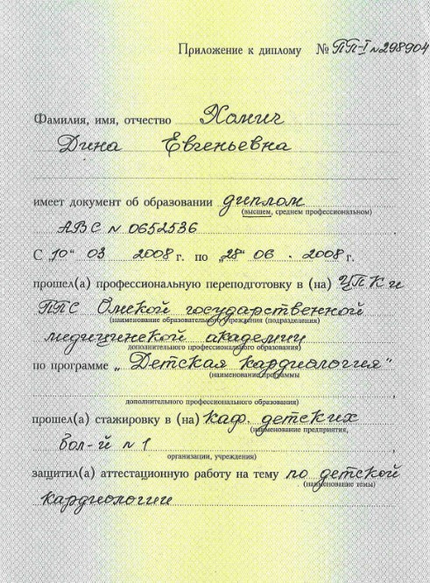 Приложение к диплому № ПП-I №298904
Фамилия, имя, отчество Хомич
Дина Евгеньевна
имеет документ об образовании диплом
(высшем, среднем профессиональном)
АВС № 0652536
С „10“ 03 2008 г. по „28“ 06 . 2008 г.
прошел(а) профессиональную переподготовку в (на) ЦПК и
ППС Омской государственной
(наименование образовательного учреждения (подразделения)
медицинской академии
дополнительного профессионального образования)
по программе „Детская кардиология“
(наименование программы
дополнительного профессионального образования)
прошел(а) стажировку в (на) каф. детских
(наименование предприятия,
бол-й №1
организации, учреждения)
защитил(а) аттестационную работу на тему по детской
(наименование темы)
кардиологии